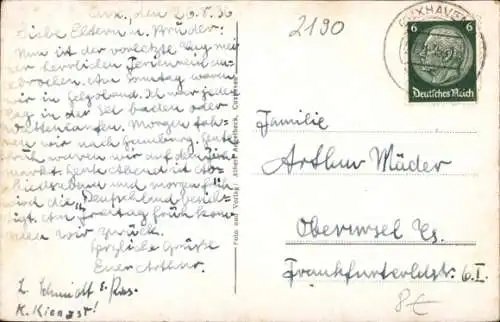 Cux., den 26.8.36
Liebe Eltern u. Brüder!
Nun ist der vorletzte Tag meiner
herrlichen Ferienreise
brochen. Am Sonntag waren
wir in Helgoland. Ich war jeden
Tag in der See baden oder
Wattenlaufen. Morgen fah-
ren wir nach Hamburg. Heute
früh waren wir auf dem Fisch
markt. Heute Abend ist Ab-
schiedsabend und morgen früh
wird die „Deutschland" besich-
tigt. Am Freitag früh kom-
men wir zurück.
Herzliche Grüsse
Euer Arthur.
L. Schmidt
K. Kienast!
Foto und Verlag: Albert
2190
CUXHAVEN
6 6
Deutsches Reich
Familie
Arthur Mäder
Oberursel Ts.
Frankfurterldstr. 6 I.
8€